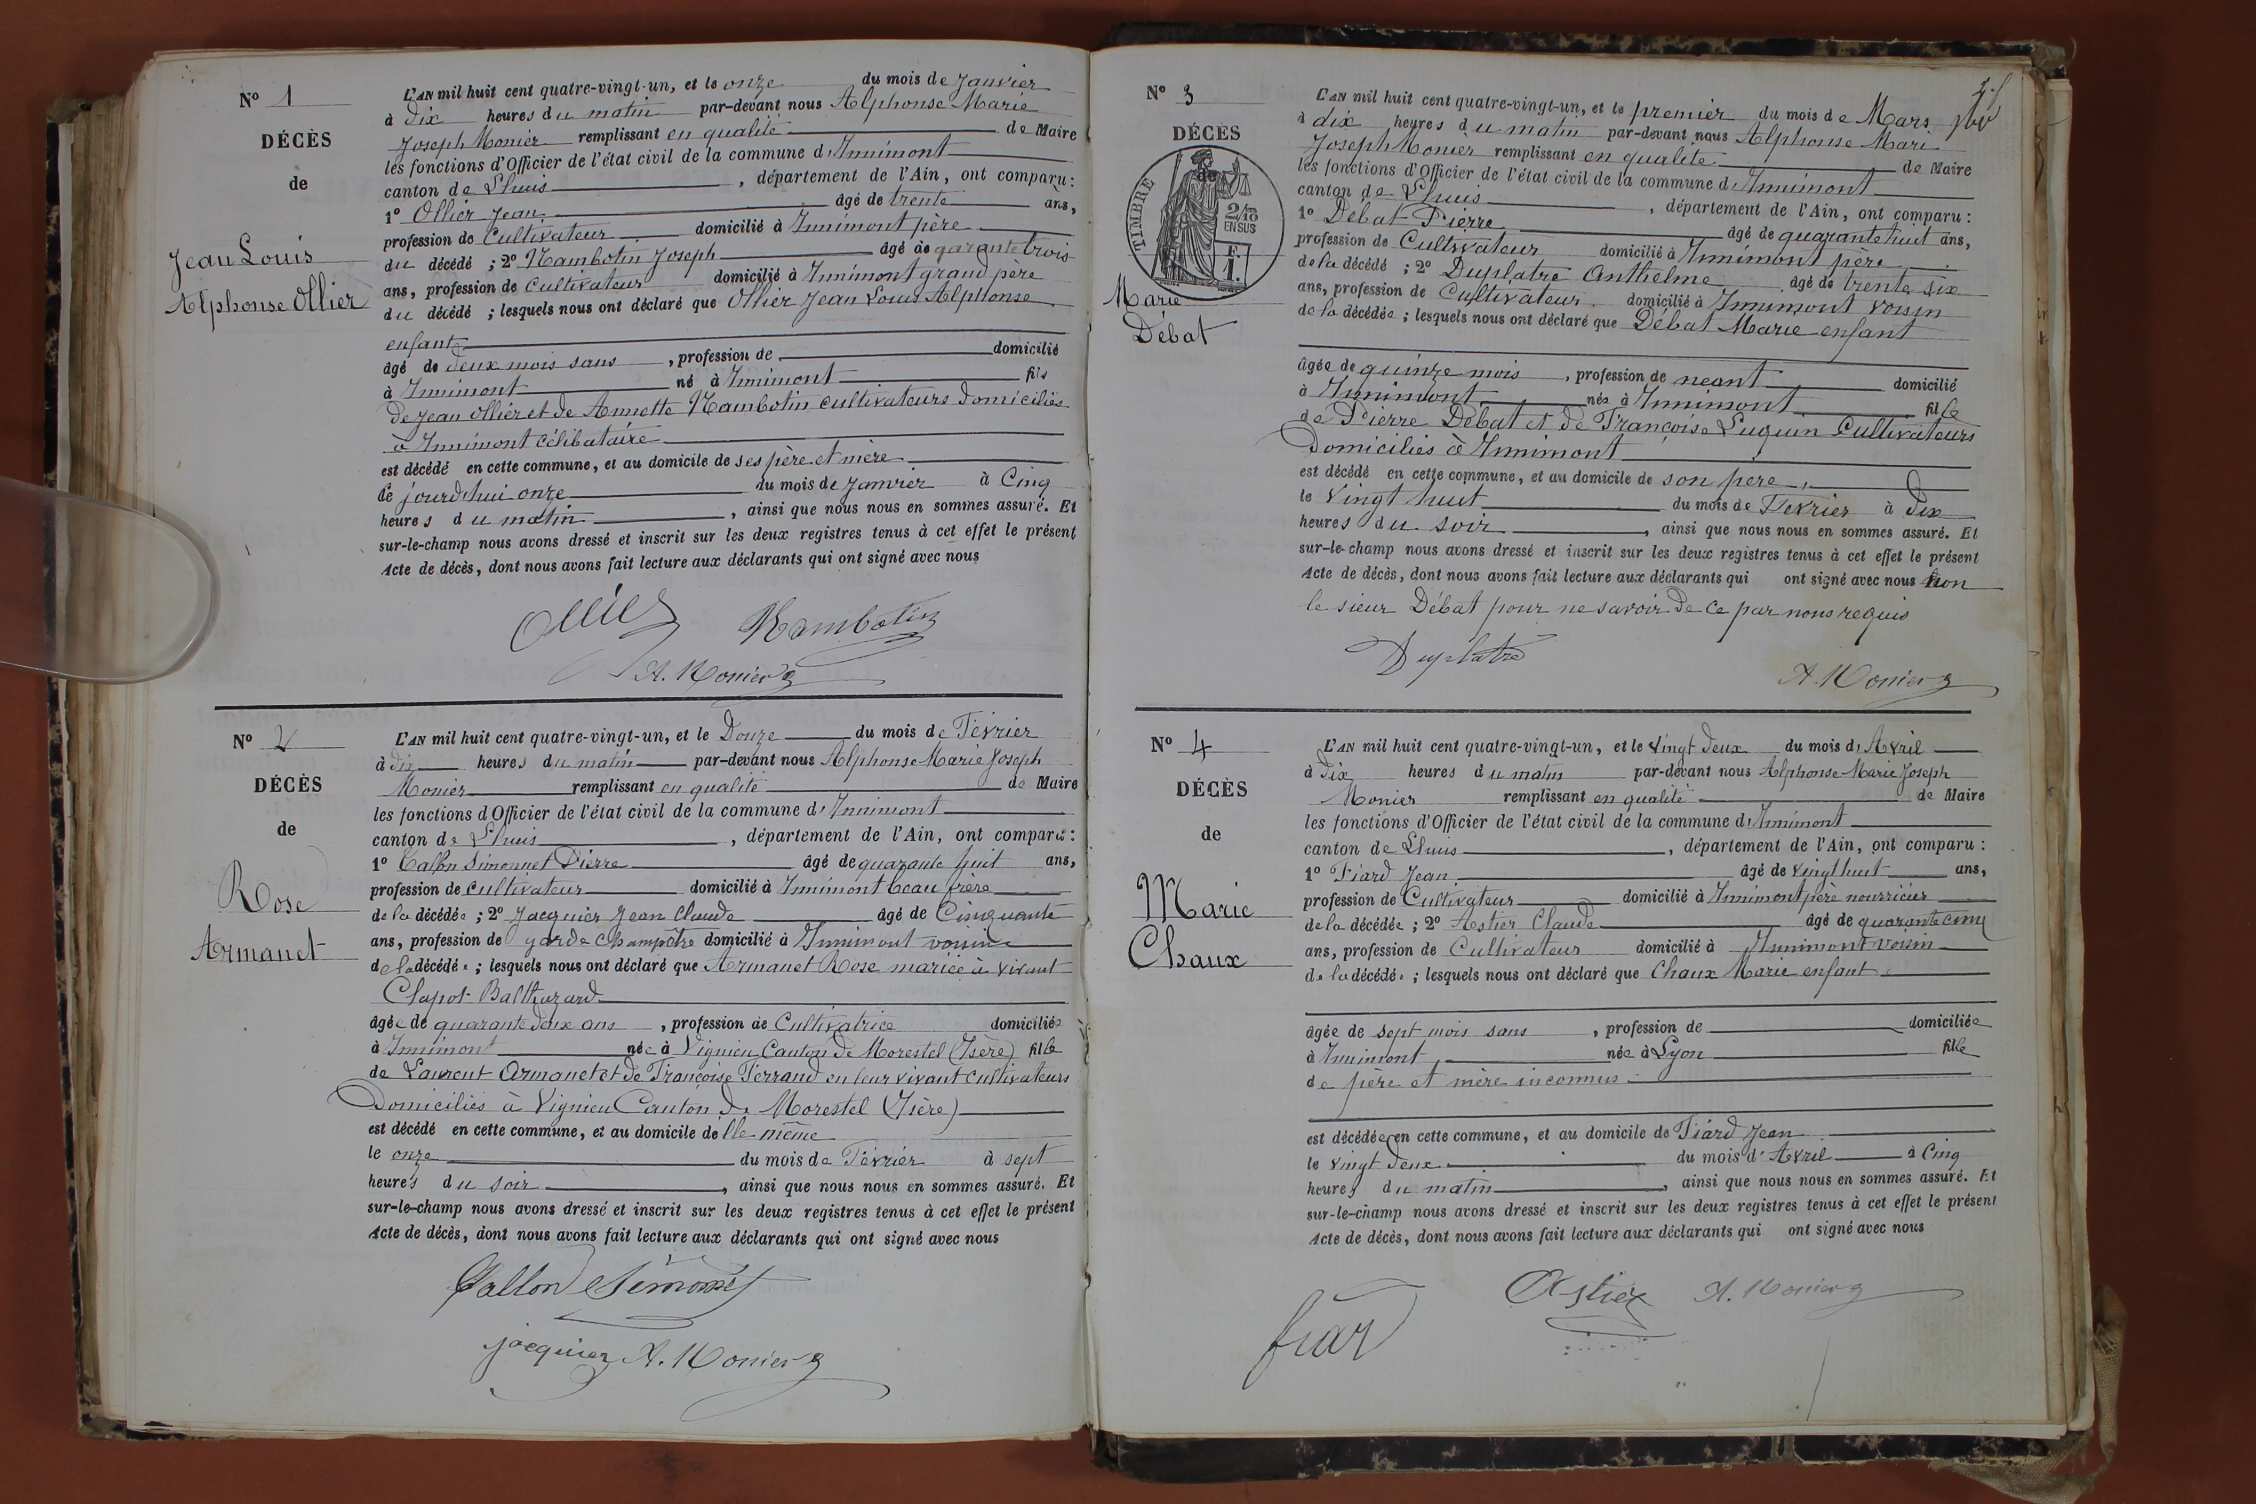 N° 1
DÉCÈS
de
Jean Louis
Alphonse Ollier
L'AN mil huit cent quatre-vingt-un, et le onze du mois de Janvier
à dix heures du matin par-devant nous Alphonse Marie
Joseph Monier remplissant en qualité de Maire
les fonctions d'Officier de l'état civil de la commune d'Innimont
canton de Lhuis, département de l'Ain, ont comparu :
1° Ollier Jean âgé de trente ans,
profession de Cultivateur domicilié à Innimont père
du décédé ; 2° Nambotin Joseph âgé de qarante trois
ans, profession de Cultivateur domicilié à Innimont grand père
du décédé ; lesquels nous ont déclaré que Ollier Jean Louis Alphonse
enfant
âgé de deux mois sans, profession de domicilié
à Innimont né à Innimont fils
de Jean Ollier et de Annette Nambotin cultivateurs domiciliés
à Innimont célibataire
est décédé en cette commune, et au domicile de ses père et mère
le jourd'hui onze du mois de Janvier à Cinq
heures du matin, ainsi que nous nous en sommes assuré. Et
sur-le-champ nous avons dressé et inscrit sur les deux registres tenus à cet effet le présent
Acte de décès, dont nous avons fait lecture aux déclarants qui ont signé avec nous
Ollier Nambotin
A. Monier
N° 2
DÉCÈS
de
Rose
Armanet
L'AN mil huit cent quatre-vingt-un, et le Douze du mois de Février
à dix heures du matin par-devant nous Alphonse Marie Joseph
Monier remplissant en qualité de Maire
les fonctions d'Officier de l'état civil de la commune d'Innimont
canton de Lhuis, département de l'Ain, ont comparu :
1° Callon Simonnet Pierre âgé de quarante huit ans,
profession de cultivateur domicilié à Innimont beau frère
de la décédée ; 2° Jacquier Jean Claude âgé de Cinquante
ans, profession de garde champêtre domicilié à Innimont voisin
de la décédée ; lesquels nous ont déclaré que Armanet Rose mariée à vivant
Clapot Balthazard
âgée de quarante deux ans, profession de Cultivatrice domiciliée
à Innimont née à Vignieu Canton de Morestel (Isère) fille
de Laurent Armanet et de Françoise Ferrand en leur vivant cultivateurs
Domiciliés à Vignieu Canton de Morestel (Isère)
est décédé en cette commune, et au domicile de lle même
le onze du mois de Février à sept
heures du soir, ainsi que nous nous en sommes assuré. Et
sur-le-champ nous avons dressé et inscrit sur les deux registres tenus à cet effet le présent
Acte de décès, dont nous avons fait lecture aux déclarants qui ont signé avec nous
Callon Simonet
jacquier A. Monier
N° 3
DÉCÈS
de
TIMBRE
2/10
EN SUS
F.
1.
Marie
Débat
L'AN mil huit cent quatre-vingt-un, et le premier du mois de Mars
à dix heures du matin par-devant nous Alphonse Mari
Joseph Monier remplissant en qualité de Maire
les fonctions d'Officier de l'état civil de la commune d'Innimont
canton de Lhuis, département de l'Ain, ont comparu :
1° Débat Pierre âgé de quarante huit ans,
profession de Cultivateur domicilié à Innimont père
de la décédé ; 2° Duplatre Anthelme âgé de trente six
ans, profession de Cultivateur domicilié à Innimont voisin
de la décédée ; lesquels nous ont déclaré que Débat Marie enfant
âgée de quinze mois, profession de neant domicilié
à Innimont née à Innimont fille
de Pierre Débat et de Françoise Luguin Cultivateurs
Domiciliés à Innimont
est décédé en cette commune, et au domicile de son pere
le Vingt huit du mois de Février à Dix
heures du soir, ainsi que nous nous en sommes assuré. Et
sur-le-champ nous avons dressé et inscrit sur les deux registres tenus à cet effet le présent
Acte de décès, dont nous avons fait lecture aux déclarants qui ont signé avec nous non
le sieur Débat pour ne savoir de ce par nous requis
Duplatre
A. Monier
N° 4
DÉCÈS
de
Marie
Chaux
L'AN mil huit cent quatre-vingt-un, et le Vingt deux du mois d'Avril
à Dix heures du matin par-devant nous Alphonse Marie Joseph
Monier remplissant en qualité de Maire
les fonctions d'Officier de l'état civil de la commune d'Innimont
canton de Lhuis, département de l'Ain, ont comparu :
1° Fiard Jean âgé de Vingt huit ans,
profession de Cultivateur domicilié à Innimont père nourricier
de la décédée ; 2° Astier Claude âgé de quarante cinq
ans, profession de Cultivateur domicilié à Innimont voisin
de la décédée ; lesquels nous ont déclaré que Chaux Marie enfant
âgée de sept mois sans, profession de domiciliée
à Innimont, née à Lyon fille
de père et mère inconnus
est décédée en cette commune, et au domicile de Fiard Jean
le vingt deux du mois d'Avril à Cinq
heures du matin, ainsi que nous nous en sommes assuré. Et
sur-le-champ nous avons dressé et inscrit sur les deux registres tenus à cet effet le présent
Acte de décès, dont nous avons fait lecture aux déclarants qui ont signé avec nous
Astier A. Monier
fiar